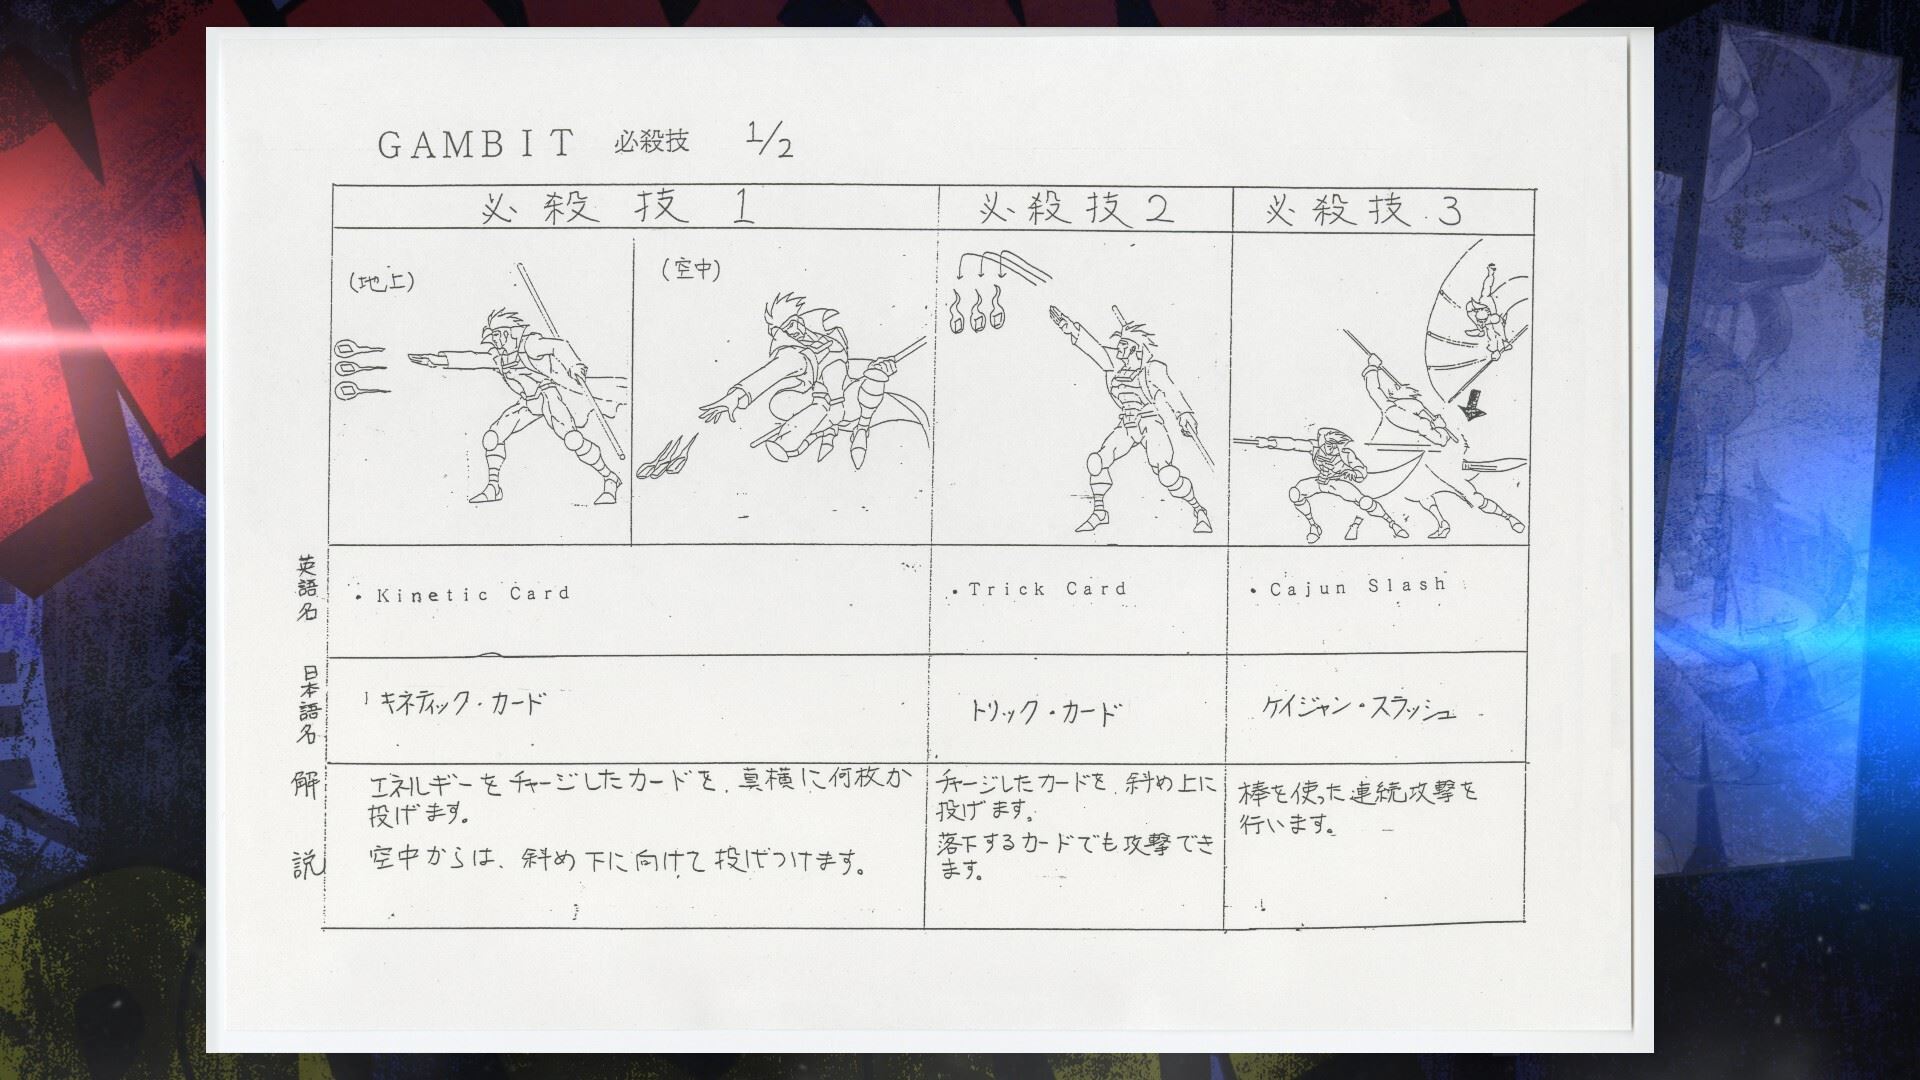 GAMBIT 必殺技 1/2
必殺技 1
必殺技 2
必殺技 3
(地上)
(空中)
英語名
・Kinetic Card
・Trick Card
・Cajun Slash
日本語名
キネティック・カード
トリック・カード
ケイジャン・スラッシュ
解説
エネルギーをチャージしたカードを、真横に何枚か
投げます。
空中からは、斜め下に向けて投げつけます。
チャージしたカードを、斜め上に
投げます。
落下するカードでも攻撃でき
ます。
棒を使った連続攻撃を
行います。